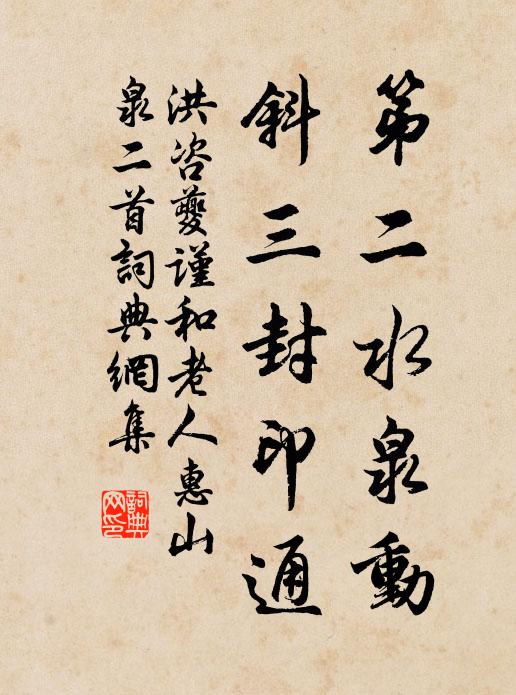 第二水泉動
斜三封印通
洪咨夔謹和老人惠山
泉二首詞典網集
詞典網印